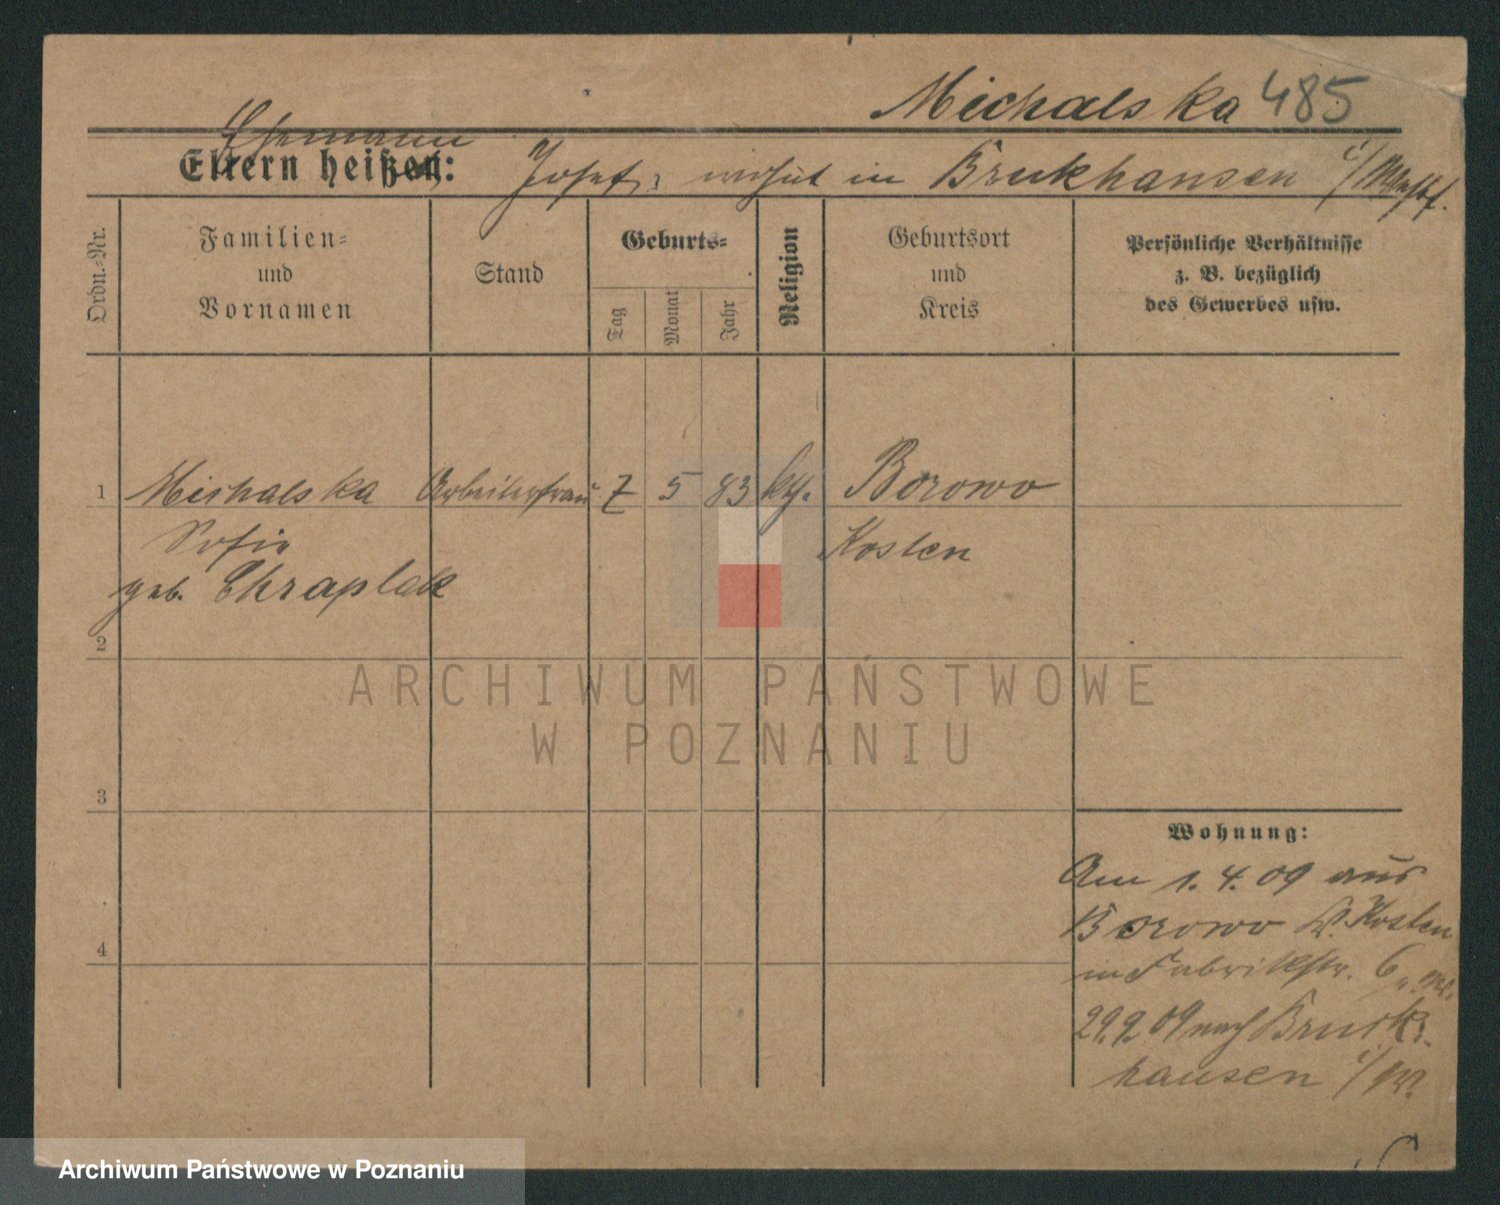 Michalska 485
Ehemann
Eltern heißen: Josef, wohnt in Bruckhausen i/Westf.
Ordn.-Nr.
Familien-
und
Vornamen
Stand
Geburts-
Tag
Monat
Jahr
Religion
Geburtsort
und
Kreis
Persönliche Verhältnisse
z. B. bezüglich
des Gewerbes usw.
1 Michalska Arbeiterfrau 7 5 83 kth. Borowo
Sofie Kosten
geb. Chraplak
2
ARCHIWUM PAŃSTWOWE
W POZNANIU
3
Wohnung:
Am 1.4.09 aus
Borowo Kr. Kosten
4
in Fabrikstr. 6
29.9.09 nach Bruck-
hausen i/W.
Archiwum Państwowe w Poznaniu